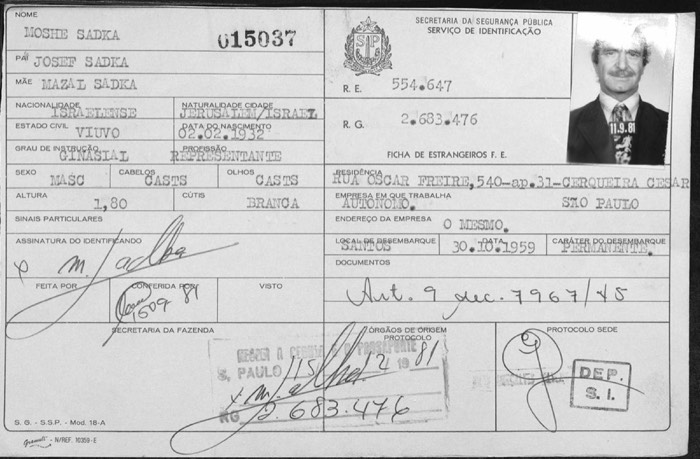 NOME
MOSHE SADKA
015037
PAI JOSEF SADKA
MÃE MAZAL SADKA
NACIONALIDADE
ISRAELENSE
NATURALIDADE CIDADE
JERUSALEM/ISRAEL
ESTADO CIVIL
VIUVO
DATA DO NASCIMENTO
02.02.1932
GRAU DE INSTRUÇÃO
GINASIAL
PROFISSÃO
REPRESENTANTE
SEXO
MASC
CABELOS
CASTS
OLHOS
CASTS
ALTURA
1,80
CÚTIS
BRANCA
SINAIS PARTICULARES
ASSINATURA DO IDENTIFICANDO
FEITA POR
CONFERIDA POR
1509 81
VISTO
SECRETARIA DA SEGURANÇA PÚBLICA
SERVIÇO DE IDENTIFICAÇÃO
SP
R. E. 554.647
R. G. 2.683.476
FICHA DE ESTRANGEIROS F. E.
11.9.81
RESIDÊNCIA
RUA OSCAR FREIRE,540-ap.31-CERQUEIRA CESAR
EMPRESA EM QUE TRABALHA
AUTONOMO. SÃO PAULO
ENDEREÇO DA EMPRESA
O MESMO.
LOCAL DE DESEMBARQUE
SANTOS
DATA
30.10.1959
CARÁTER DO DESEMBARQUE
PERMANENTE.
DOCUMENTOS
Art. 9 dec. 7967/45
SECRETARIA DA FAZENDA
ÓRGÃOS DE ORIGEM
PROTOCOLO
PROTOCOLO SEDE
PASSAPORTE
S. PAULO 15 12 1981
RG 2.683.476
DEP.
S. I.
S. G. - S.S.P. - Mod. 18-A
N/REF. 10359-E